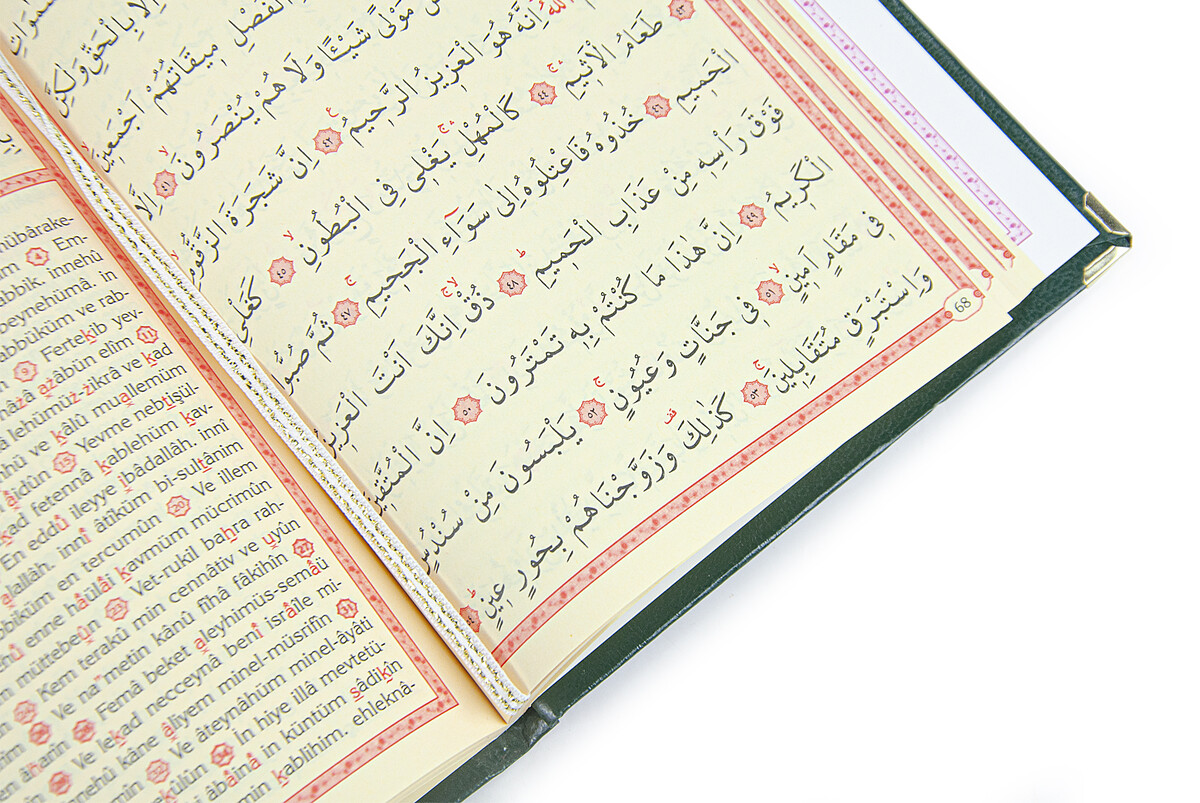 اِلَّا بِالْحَقِّ وَلٰكِنَّ
الْفَصْلِ مِيقَاتُهُمْ اَجْمَعِينَ
مَوْلًى شَيْـًٔا وَلَا هُمْ يُنْصَرُونَ ٤١ اِلَّا
اللّٰهُ اِنَّهُ هُوَ الْعَزِيزُ الرَّحِيمُ ٤٢ اِنَّ شَجَرَةَ الزَّقُّومِ
٤٣ طَعَامُ الْاَثِيمِ ٤٤ كَالْمُهْلِ يَغْلِي فِي الْبُطُونِ ٤٥ كَغَلْيِ
الْحَمِيمِ ٤٦ خُذُوهُ فَاعْتِلُوهُ اِلٰى سَوَاءِ الْجَحِيمِ ٤٧ ثُمَّ صُبُّوا
فَوْقَ رَأْسِهِ مِنْ عَذَابِ الْحَمِيمِ ٤٨ ذُقْ اِنَّكَ اَنْتَ الْعَزِيزُ
الْكَرِيمُ ٤٩ اِنَّ هٰذَا مَا كُنْتُمْ بِهِ تَمْتَرُونَ ٥٠ اِنَّ الْمُتَّقِينَ
فِي مَقَامٍ اَمِينٍ ٥١ فِي جَنَّاتٍ وَعُيُونٍ ٥٢ يَلْبَسُونَ مِنْ سُنْدُسٍ
وَاِسْتَبْرَقٍ مُتَقَابِلِينَ ٥٣ كَذٰلِكَ وَزَوَّجْنَاهُمْ بِحُورٍ عِينٍ ٥٤
68
mübârake-
4 Em-
rabbik. innehû
beynehümâ. in
rabbüküm ve rab-
9 Fertekib yev-
hâzâ azâbün elîm 11
lehümüz-zikrâ ve kad
ve kâlû muallemüm
15 Yevme nebtişül-
kad fetennâ kablehüm kav-
En eddû ileyye ibâdallâh. innî
alallâh. innî âtîküm bi-sultânim
en tercumûn 20 Ve illem
enne hâülâi kavmüm mücrimûn
müttebeûn 23 Vet-rukil bahra rah-
Kem terakû min cennâtiv ve uyûn
Ve na'metin kânû fîhâ fâkihîn 27
28 Femâ beket aleyhimüs-semâü
Ve lekad necceynâ benî isrâîle mi-
kâne âliyem minel-müsrifîn 31
32 Ve âteynâhüm minel-âyâti
34 İn hiye illâ mevtetü-
âbâinâ in küntüm sâdikîn
min kablihim. ehleknâ-